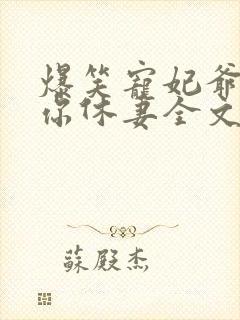 爆笑寵妃爺
你休妻全文
蘇殿杰